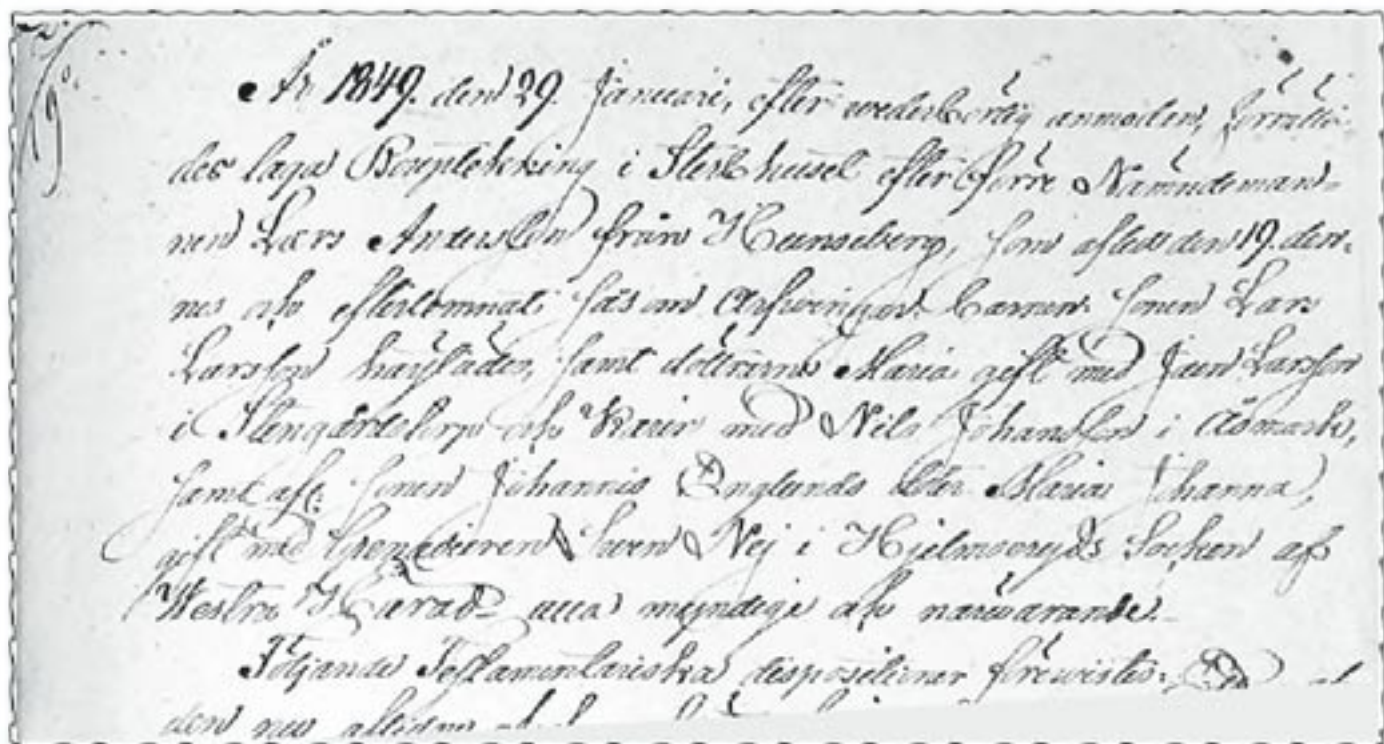 År 1849. den 29. Januari, efter wederbörlig anmodan, förrätta-
des laga Bouptekking i Sterbhuset efter förre Nämndeman-
nen Lars Andersson från Hunseberg, som afled den 19. den-
nes och efterlemnat såsom Arfwingar. barnen. sonen Lars
Larsson härstädes, samt döttrarne Maria gift med Jaen Larsson
i Stengårdstorp och Karin med Nils Johansson i Åsmark,
samt afl: sonen Johannis Englunds dotter Maria Johanna,
gift med Grenadieren Swen Nej i Hjelmseryds Socken af
Westra Härad alla myndige och närwarande.
Följande Testamentariska dispositioner förewistes:
den nu aflidne